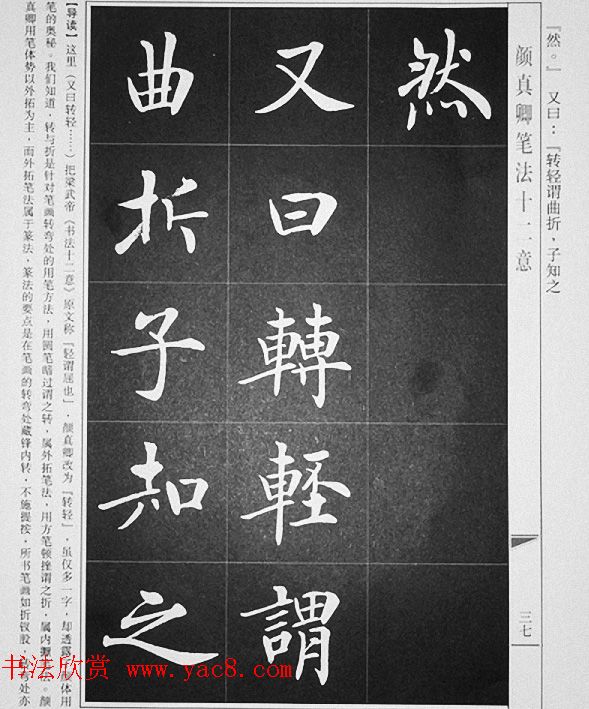 『然。』 又曰：『转轻谓曲折，子知之
颜真卿笔法十二意
三七
然
又曰轉輕謂
曲折子知之
【导读】 这里（又曰转轻……）把梁武帝《书法十二意》原文称『轻谓屈也』，颜真卿改为『转轻』，虽仅多一字，却透露 体用
笔的奥秘。我们知道，转与折是针对笔画转弯处的用笔方法，用圆笔暗过谓之转，属外拓笔法，用方笔顿挫谓之折，属内 法。颜
真卿用笔体势以外拓为主，而外拓笔法属于篆法，篆法的要点是在笔画的转弯处藏锋内转，不施提按，所书笔画如折钗股， 弯处亦
书法欣赏 www.yac8.com